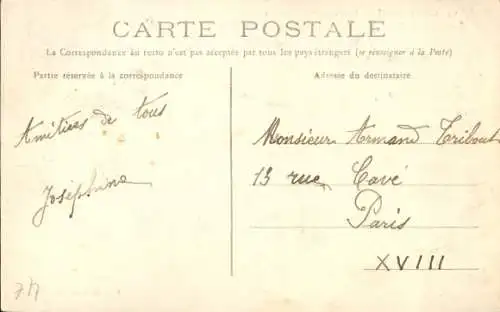 CARTE POSTALE
La Correspondance au recto n'est pas acceptée par tous les pays étrangers (se renseigner à la Poste)
Partie réservée à la correspondance
Adresse du destinataire
Amitiés de tous
Joséphine
Monsieur Armand Tribout
13 rue Cavé
Paris
XVIII